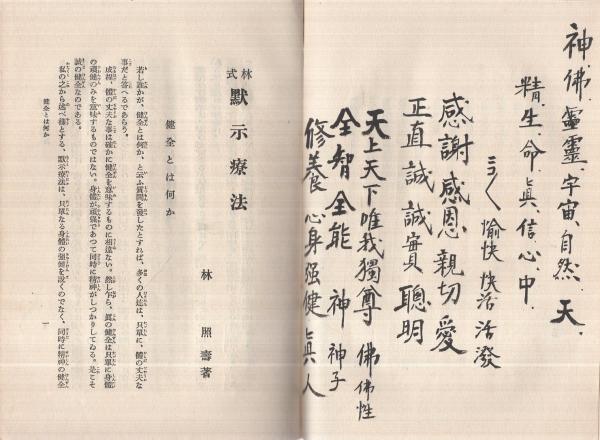 神、佛、靈靈、宇宙、自然、天、
精、生、命、眞、信、心、中、
愉快 快活 活潑
感謝感恩親切愛
正直誠誠實聰明
天上天下唯我獨尊 佛 佛性
全智全能 神 神子
修養 心身强健眞人
林式 默示療法
林 照壽著
健全とは何か
若し誰かが、健全とは何か、と云ふ質問を發したとすれば、多くの人達は、只單に、體の丈夫な
事だと答へるであらう。
成程、體の丈夫な事は確かに健全を意味するものに相違ない。然し乍ら、眞の健全は只單に身體
の頑健のみを意味するものではない。身體が頑强であつて同時に精神がしつかりしてゐる。是こそ
誠の健全なのである。
私の之から述べ樣とする、默示療法は、只單なる身體の强健を說くのでなく、同時に精神の健全
健全とは何か
一